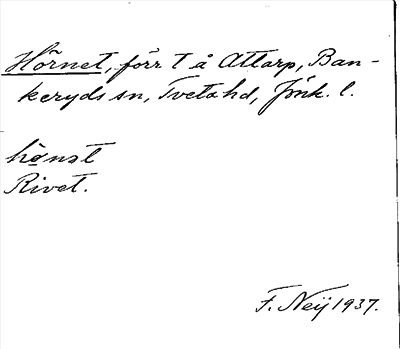 Hörnet, förr t å Attarp, Ban-
keryds sn, Tveta hd, Jönk. l.
hønat
Rivet.
F. Neij 1937.